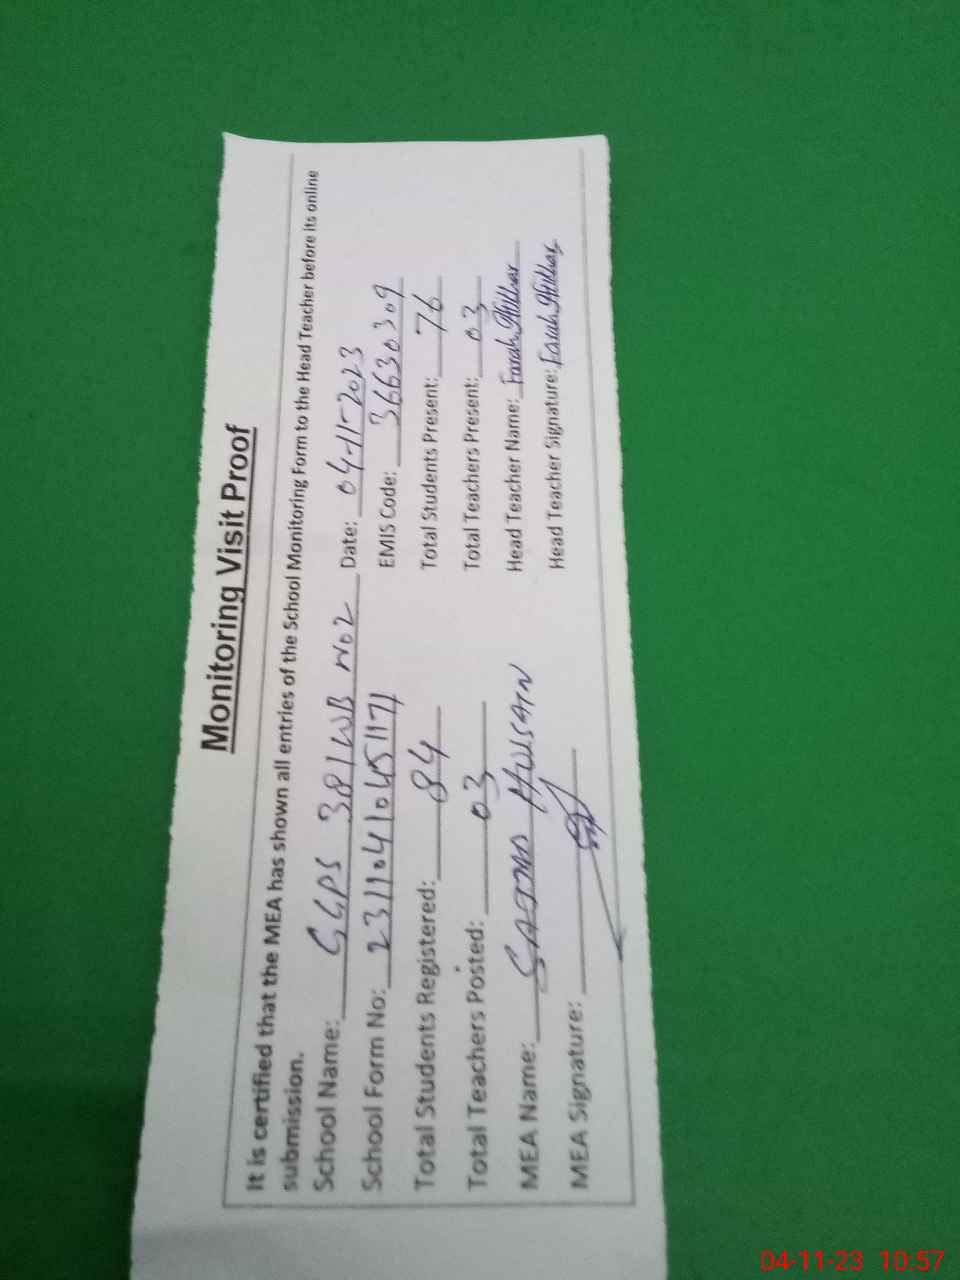 Monitoring Visit Proof
It is certified that the MEA has shown all entries of the School Monitoring Form to the Head Teacher before its online
submission.
School Name: GGPS 381WB NO2 Date: 04-11-2023
School Form No: 23110410451171 EMIS Code: 36630309
Total Students Registered: 84 Total Students Present: 76
Total Teachers Posted: 03 Total Teachers Present: 03
MEA Name: SAJJAD HUSSAIN Head Teacher Name: Farah Iftikhar
MEA Signature: Head Teacher Signature: Farah Iftikhar
04-11-23 10:57